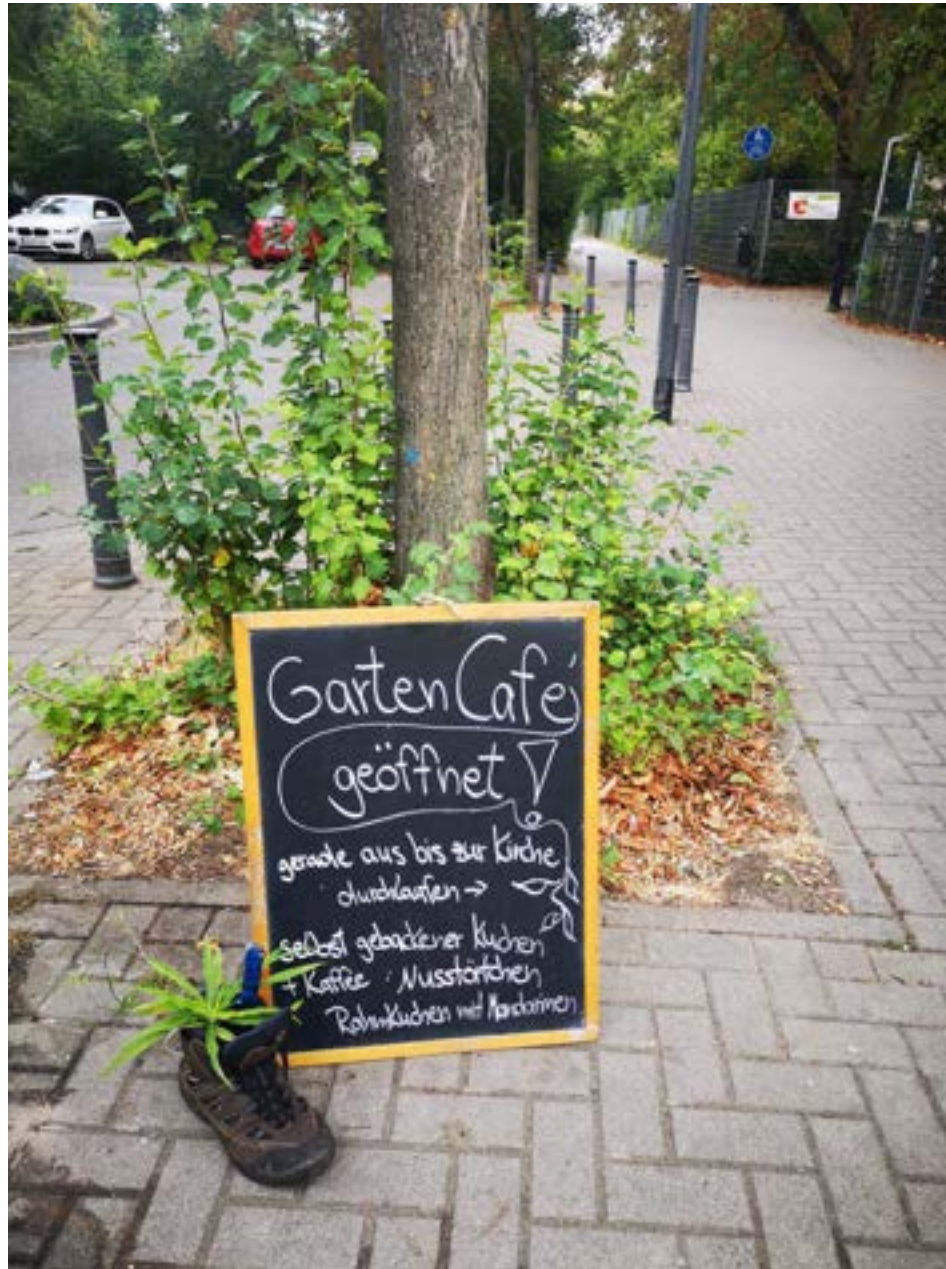 Garten Café
geöffnet!
gerade aus bis zur Kirche
durchlaufen →
selbst gebackener Kuchen
+ Kaffee : Nusstörtchen
Rahmkuchen mit Mandarinen